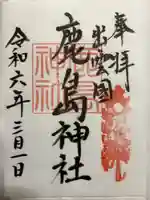 奉拝
出雲国
鹿島神社
令和六年三月一日